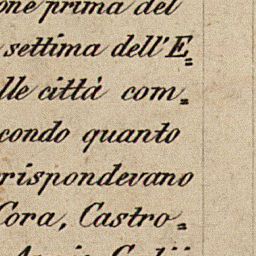 one prima del
settima dell'E=
lle città com=
condo quanto
rispondevano
Cora, Castro=